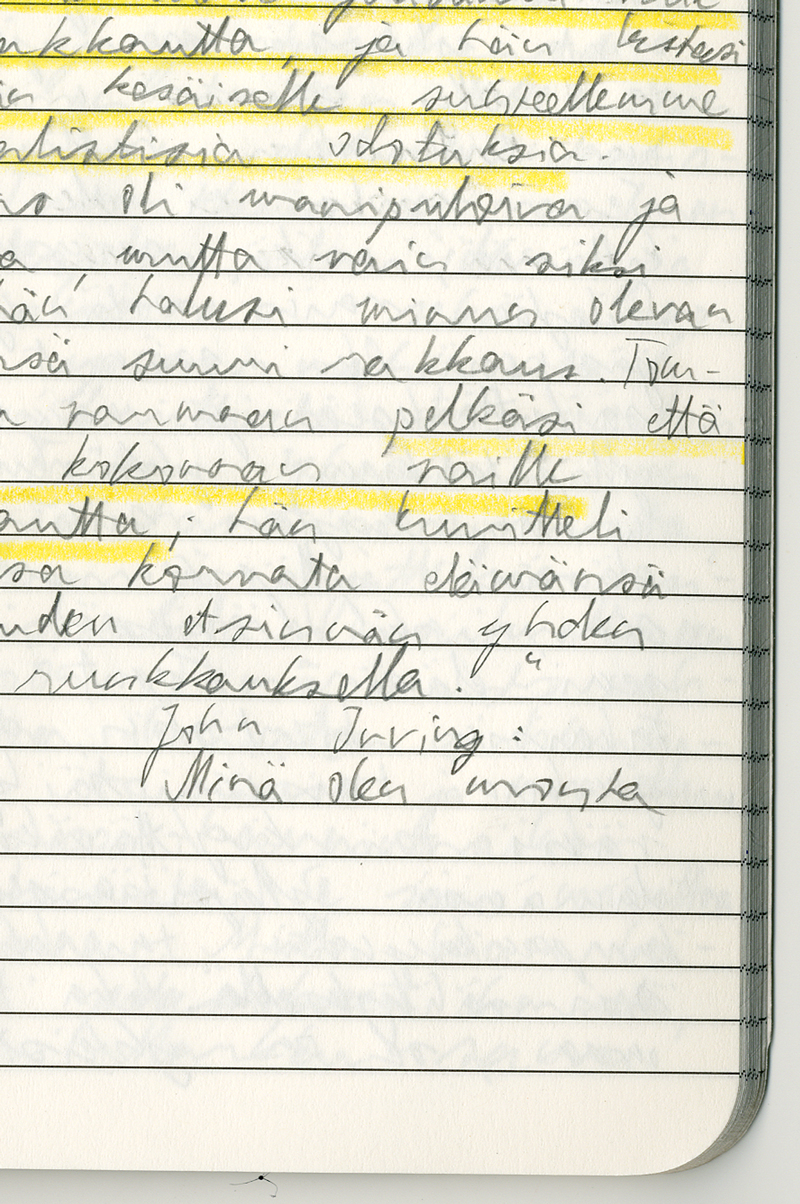 akkautta, ja hän lastasi
kesäiselle suhteellemme
alistisia odotuksia.
oli manipuloiva ja
a mutta vain siksi
hän halusi minun olevan
nsä suuri rakkaus. Tom-
varmaan pelkäsi että
kokonaan vaille
autta; hän kuvitteli
sa korvata elämänsä
uden etsinnän yhden
suurrakkauksella."
John Irving:
Minä olen monta